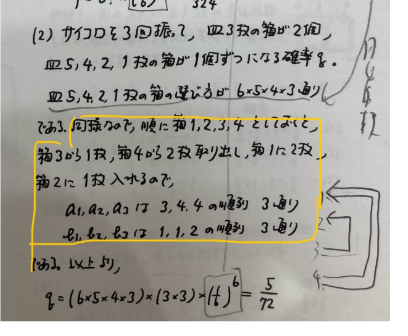 324
(2) サイコロを3回振って、皿3枚の箱が2個,
皿5,4,2,1枚の箱が1個ずつになる確率q.
皿5,4,2,1枚の箱の選び方が 6×5×4×3通り
である. 同様なので, 順に箱1,2,3,4としておくと,
箱3から1枚, 箱4から2枚取り出し, 箱1に2枚,
箱2に1枚入れるので,
a₁, a₂, a₃ は 3,4,4 の順列 3通り
b₁, b₂, b₃ は 1,1,2 の順列 3通り
である. 以上より,
q = (6×5×4×3)×(3×3)×(1/6)⁶ = 5/72
1
2
3
4